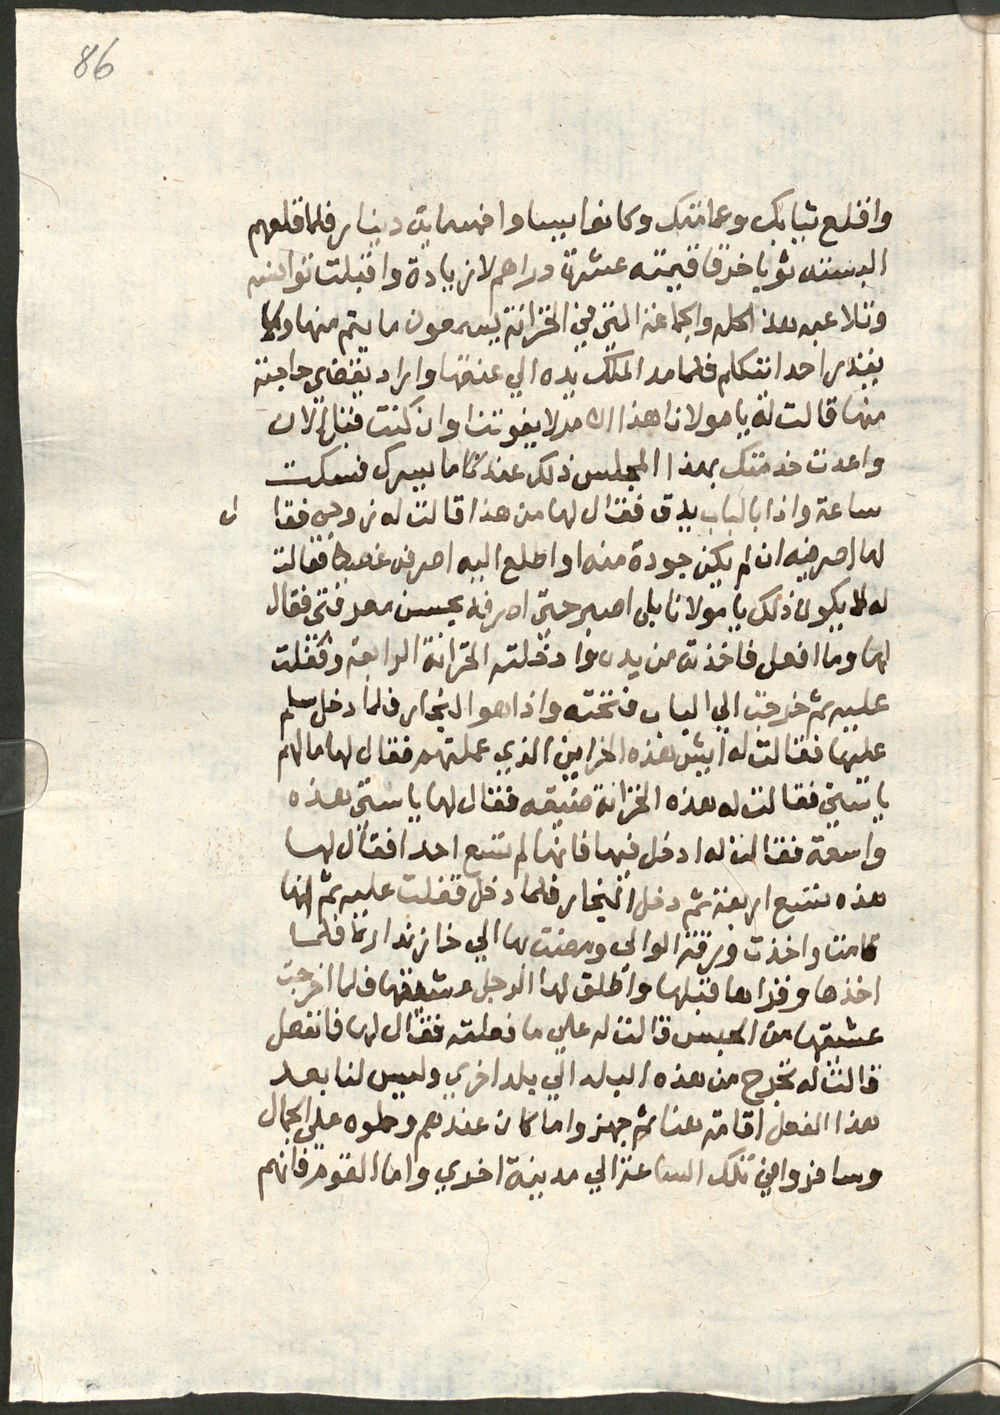 86
واقلع ثيابك وعمامتك وكانوا يساوا خمسماية دينار فلما قلعهم
البسته ثوبا خرقا قيمته عشرة دراهم لا زيادة واقبلت توانسه
وتلاعبه هذا كله والجماعة التي في الخزانة يسمعون ما يتم منها ولا
يقدر احد انتكلم فلما مد الملك يده الي عنقها واراد يقضي حاجته
منها قالت له يا مولانا هذا الامر لا يفوتنا وان كنت قبل الان
واعدت خدمتك بهذا المجلس ذلك عندنا ما يسرك فسكت
ساعة واذا بالباب يدق فقال لها من هذا قالت له زوجي فقا ل
لها اصرفيه ان لم يكن جودة منه اواطلع اليه اصرفه غصبا فقالت
له لا يكون ذلك يا مولانا بل اصبر حتي اصرفه بحسن معرفتي فقال
لها وما افعل فاخذته من يده وادخلته الخزانة الرابعة وقفلت
عليه ثم خرجت الي الباب فتحته واذا هو النجار فلما دخل سلم
عليها فقالت له ايش هذه الخزاين الذي عملتهم فقال لها مالهم
يا ستي فقالت له هذه الخزانة ضيقه فقال لها يا ستي هذه
واسعة فقالت له ادخل فيها فانها لم تسع احد افقال لها
هذه تسع اربعة ثم دخل النجار فلما دخل قفلت عليه ثم انها
قامت واخذت ورقة الوالي ومضت بها الي خازندار فلما
اخذها وقراها قبلها واطلق لها الرجل عشيقها فلما اخرجت
عشيقها من الحبس قالت له علي ما فعلته فقال لها فانفعل
قالت له نخرج من هذه البلد الي بلد اخري وليس لنا بعد
هذا الفعل اقامة هنا ثم جهزوا ما كان عندهم وحملوه علي الجمال
وسافروا في تلك الساعة الي مدينة اخري واما القوم فانهم